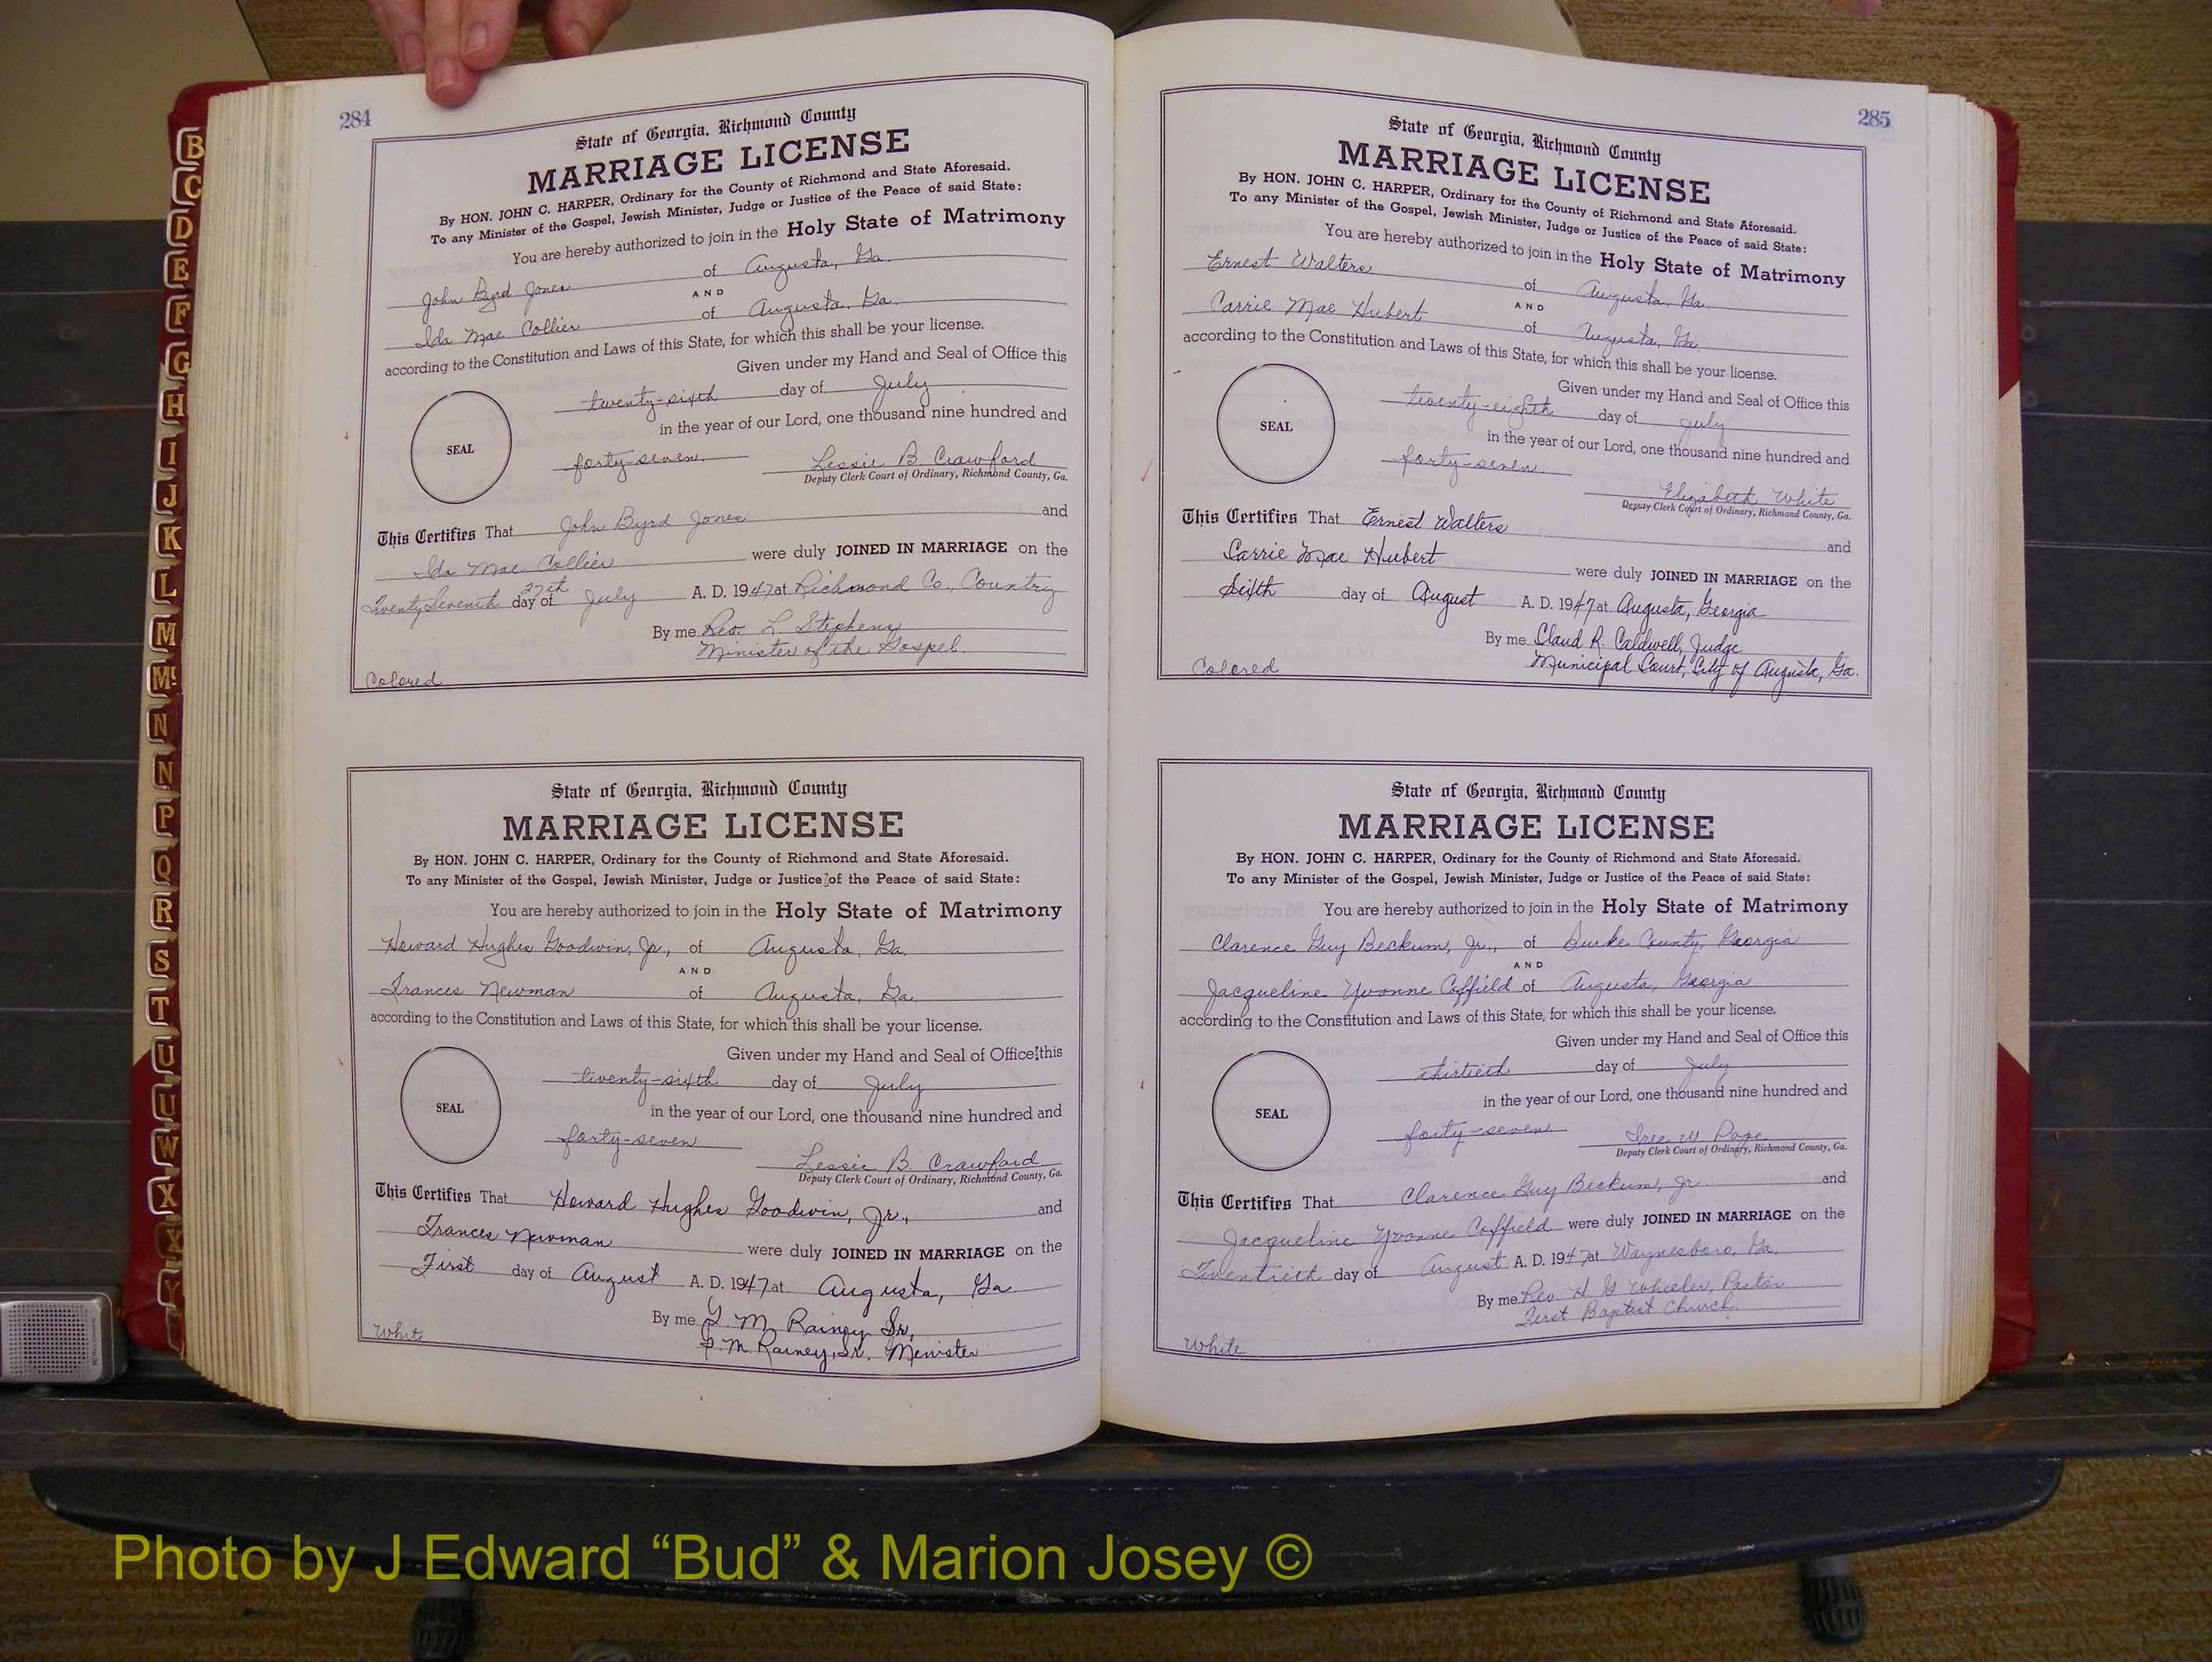 284
State of Georgia, Richmond County
MARRIAGE LICENSE
By HON. JOHN C. HARPER, Ordinary for the County of Richmond and State Aforesaid.
To any Minister of the Gospel, Jewish Minister, Judge or Justice of the Peace of said State:
You are hereby authorized to join in the Holy State of Matrimony
John Byrd Jones of Augusta, Ga.
AND
Ida Mae Collier of Augusta, Ga.
according to the Constitution and Laws of this State, for which this shall be your license.
Given under my Hand and Seal of Office this
twenty-sixth day of July
in the year of our Lord, one thousand nine hundred and
SEAL
forty-seven. Lessie B. Crawford
Deputy Clerk Court of Ordinary, Richmond County, Ga.
This Certifies That John Byrd Jones and
Ida Mae Collier were duly JOINED IN MARRIAGE on the
27th
Twenty Seventh day of July A. D. 1947 at Richmond Co., Country
By me Rev. L. Stephens
Minister of the Gospel
Colored
State of Georgia, Richmond County
MARRIAGE LICENSE
By HON. JOHN C. HARPER, Ordinary for the County of Richmond and State Aforesaid.
To any Minister of the Gospel, Jewish Minister, Judge or Justice of the Peace of said State:
You are hereby authorized to join in the Holy State of Matrimony
Howard Hughes Goodwin, Jr., of Augusta, Ga.
AND
Frances Newman of Augusta, Ga.
according to the Constitution and Laws of this State, for which this shall be your license.
Given under my Hand and Seal of Office this
twenty-sixth day of July
in the year of our Lord, one thousand nine hundred and
SEAL
forty-seven
Lessie B. Crawford
Deputy Clerk Court of Ordinary, Richmond County, Ga.
This Certifies That Howard Hughes Goodwin, Jr., and
Frances Newman were duly JOINED IN MARRIAGE on the
First day of August A. D. 1947 at Augusta, Ga.
By me Y. M. Rainey Sr.
M. Rainey, Sr. Minister
Whit
285
State of Georgia, Richmond County
MARRIAGE LICENSE
By HON. JOHN C. HARPER, Ordinary for the County of Richmond and State Aforesaid.
To any Minister of the Gospel, Jewish Minister, Judge or Justice of the Peace of said State:
You are hereby authorized to join in the Holy State of Matrimony
Ernest Walters of Augusta, Ga.
AND
Carrie Mae Hubert of Augusta, Ga.
according to the Constitution and Laws of this State, for which this shall be your license.
Given under my Hand and Seal of Office this
twenty-eighth day of July
in the year of our Lord, one thousand nine hundred and
SEAL
forty-seven.
Elizabeth White
Deputy Clerk Court of Ordinary, Richmond County, Ga.
This Certifies That Ernest Walters and
Carrie Mae Hubert were duly JOINED IN MARRIAGE on the
Sixth day of August A. D. 1947 at Augusta, Georgia
By me Claud R. Caldwell, Judge
Municipal Court, City of Augusta, Ga.
Colored
State of Georgia, Richmond County
MARRIAGE LICENSE
By HON. JOHN C. HARPER, Ordinary for the County of Richmond and State Aforesaid.
To any Minister of the Gospel, Jewish Minister, Judge or Justice of the Peace of said State:
You are hereby authorized to join in the Holy State of Matrimony
Clarence Guy Beckum, Jr., of Burke County, Georgia
AND
Jacqueline Yvonne Coffield of Augusta, Georgia
according to the Constitution and Laws of this State, for which this shall be your license.
Given under my Hand and Seal of Office this
thirtieth day of July
in the year of our Lord, one thousand nine hundred and
SEAL
forty-seven Pope
Deputy Clerk Court of Ordinary, Richmond County, Ga.
This Certifies That Clarence Guy Beckum, Jr. and
Jacqueline Yvonne Coffield were duly JOINED IN MARRIAGE on the
Twentieth day of August A. D. 1947 at Waynesboro, Ga.
By me Rev. H G Wheeler, Pastor
First Baptist Church
White
B
C
D
E
F
G
H
I
J
K
L
M
Mc
N
N
P
Q
R
S
T
U
U
W
X
X
Y
Photo by J Edward “Bud” & Marion Josey ©